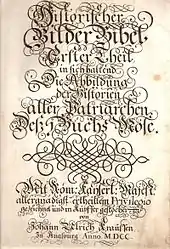 Historischer
Bilder Bibel
Erster Theil
in sich haltend
Die Abbildung
der Historien
aller Patriarchen
Deß I Buchs Mose.
Mit Röm: Kayserl: Majest:
allergnädigst-ertheiltem Privilegio
gezeichnet und in Kupffer gestochen
von
Johann Ulrich Kraussen
In Augspurg Anno MDCC.